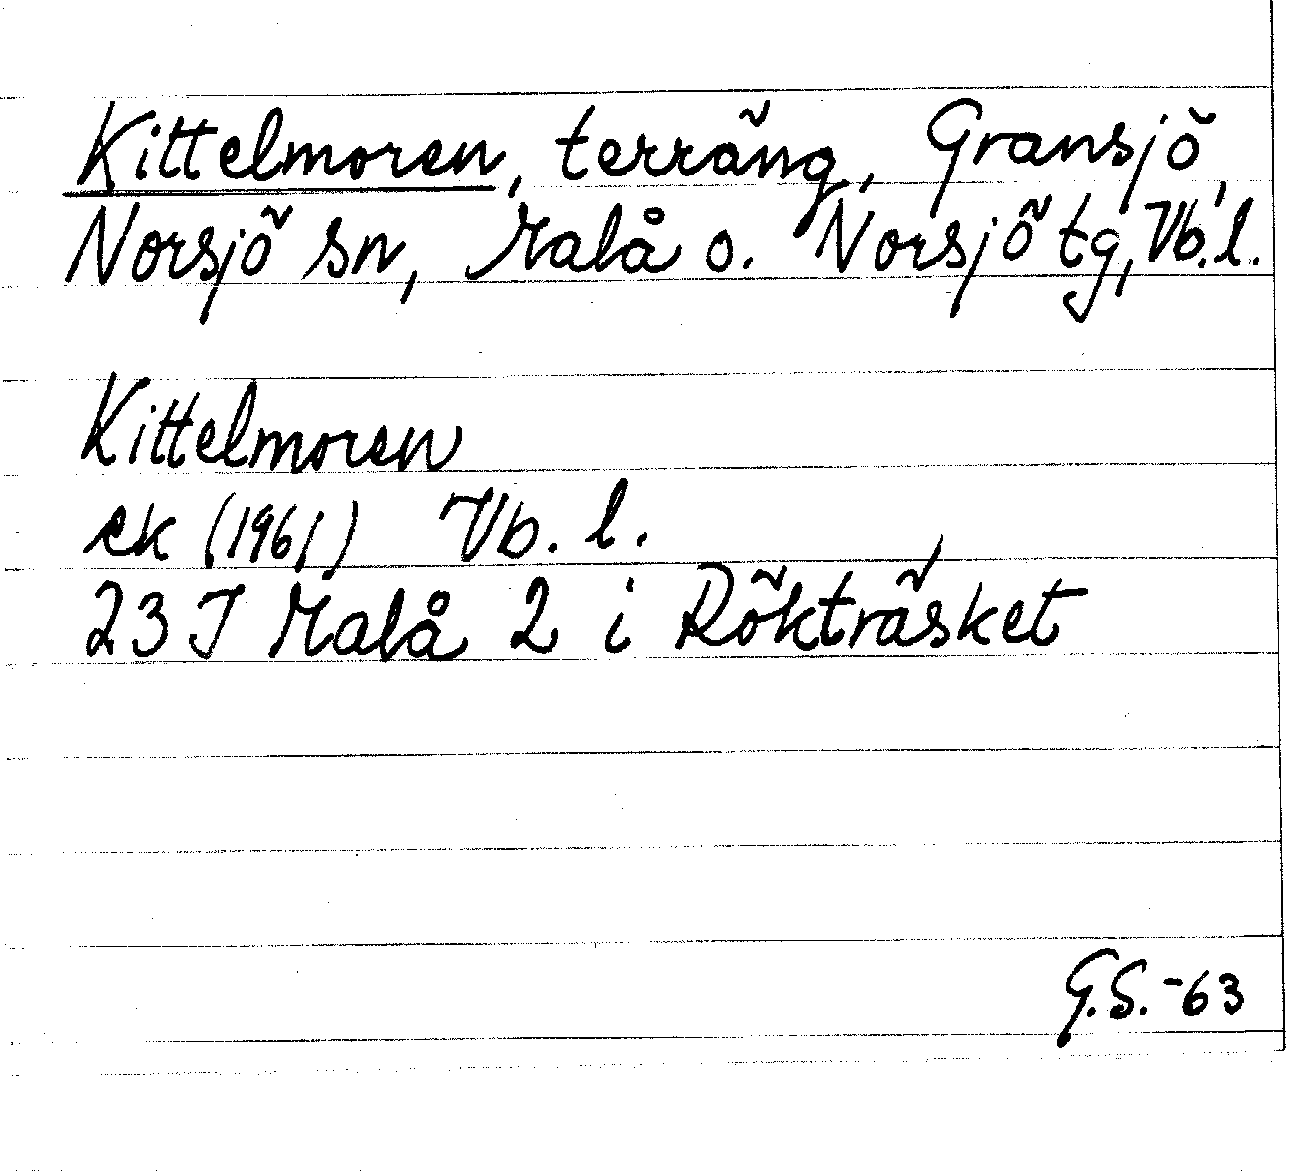 Kittelmoren, terräng, Gransjö,
Norsjö sn, Malå o. Norsjö tg, Vb. l.
Kittelmoren
ek (1961) Vb. l.
23 J Malå 2 i Rökträsket
G.S. -63